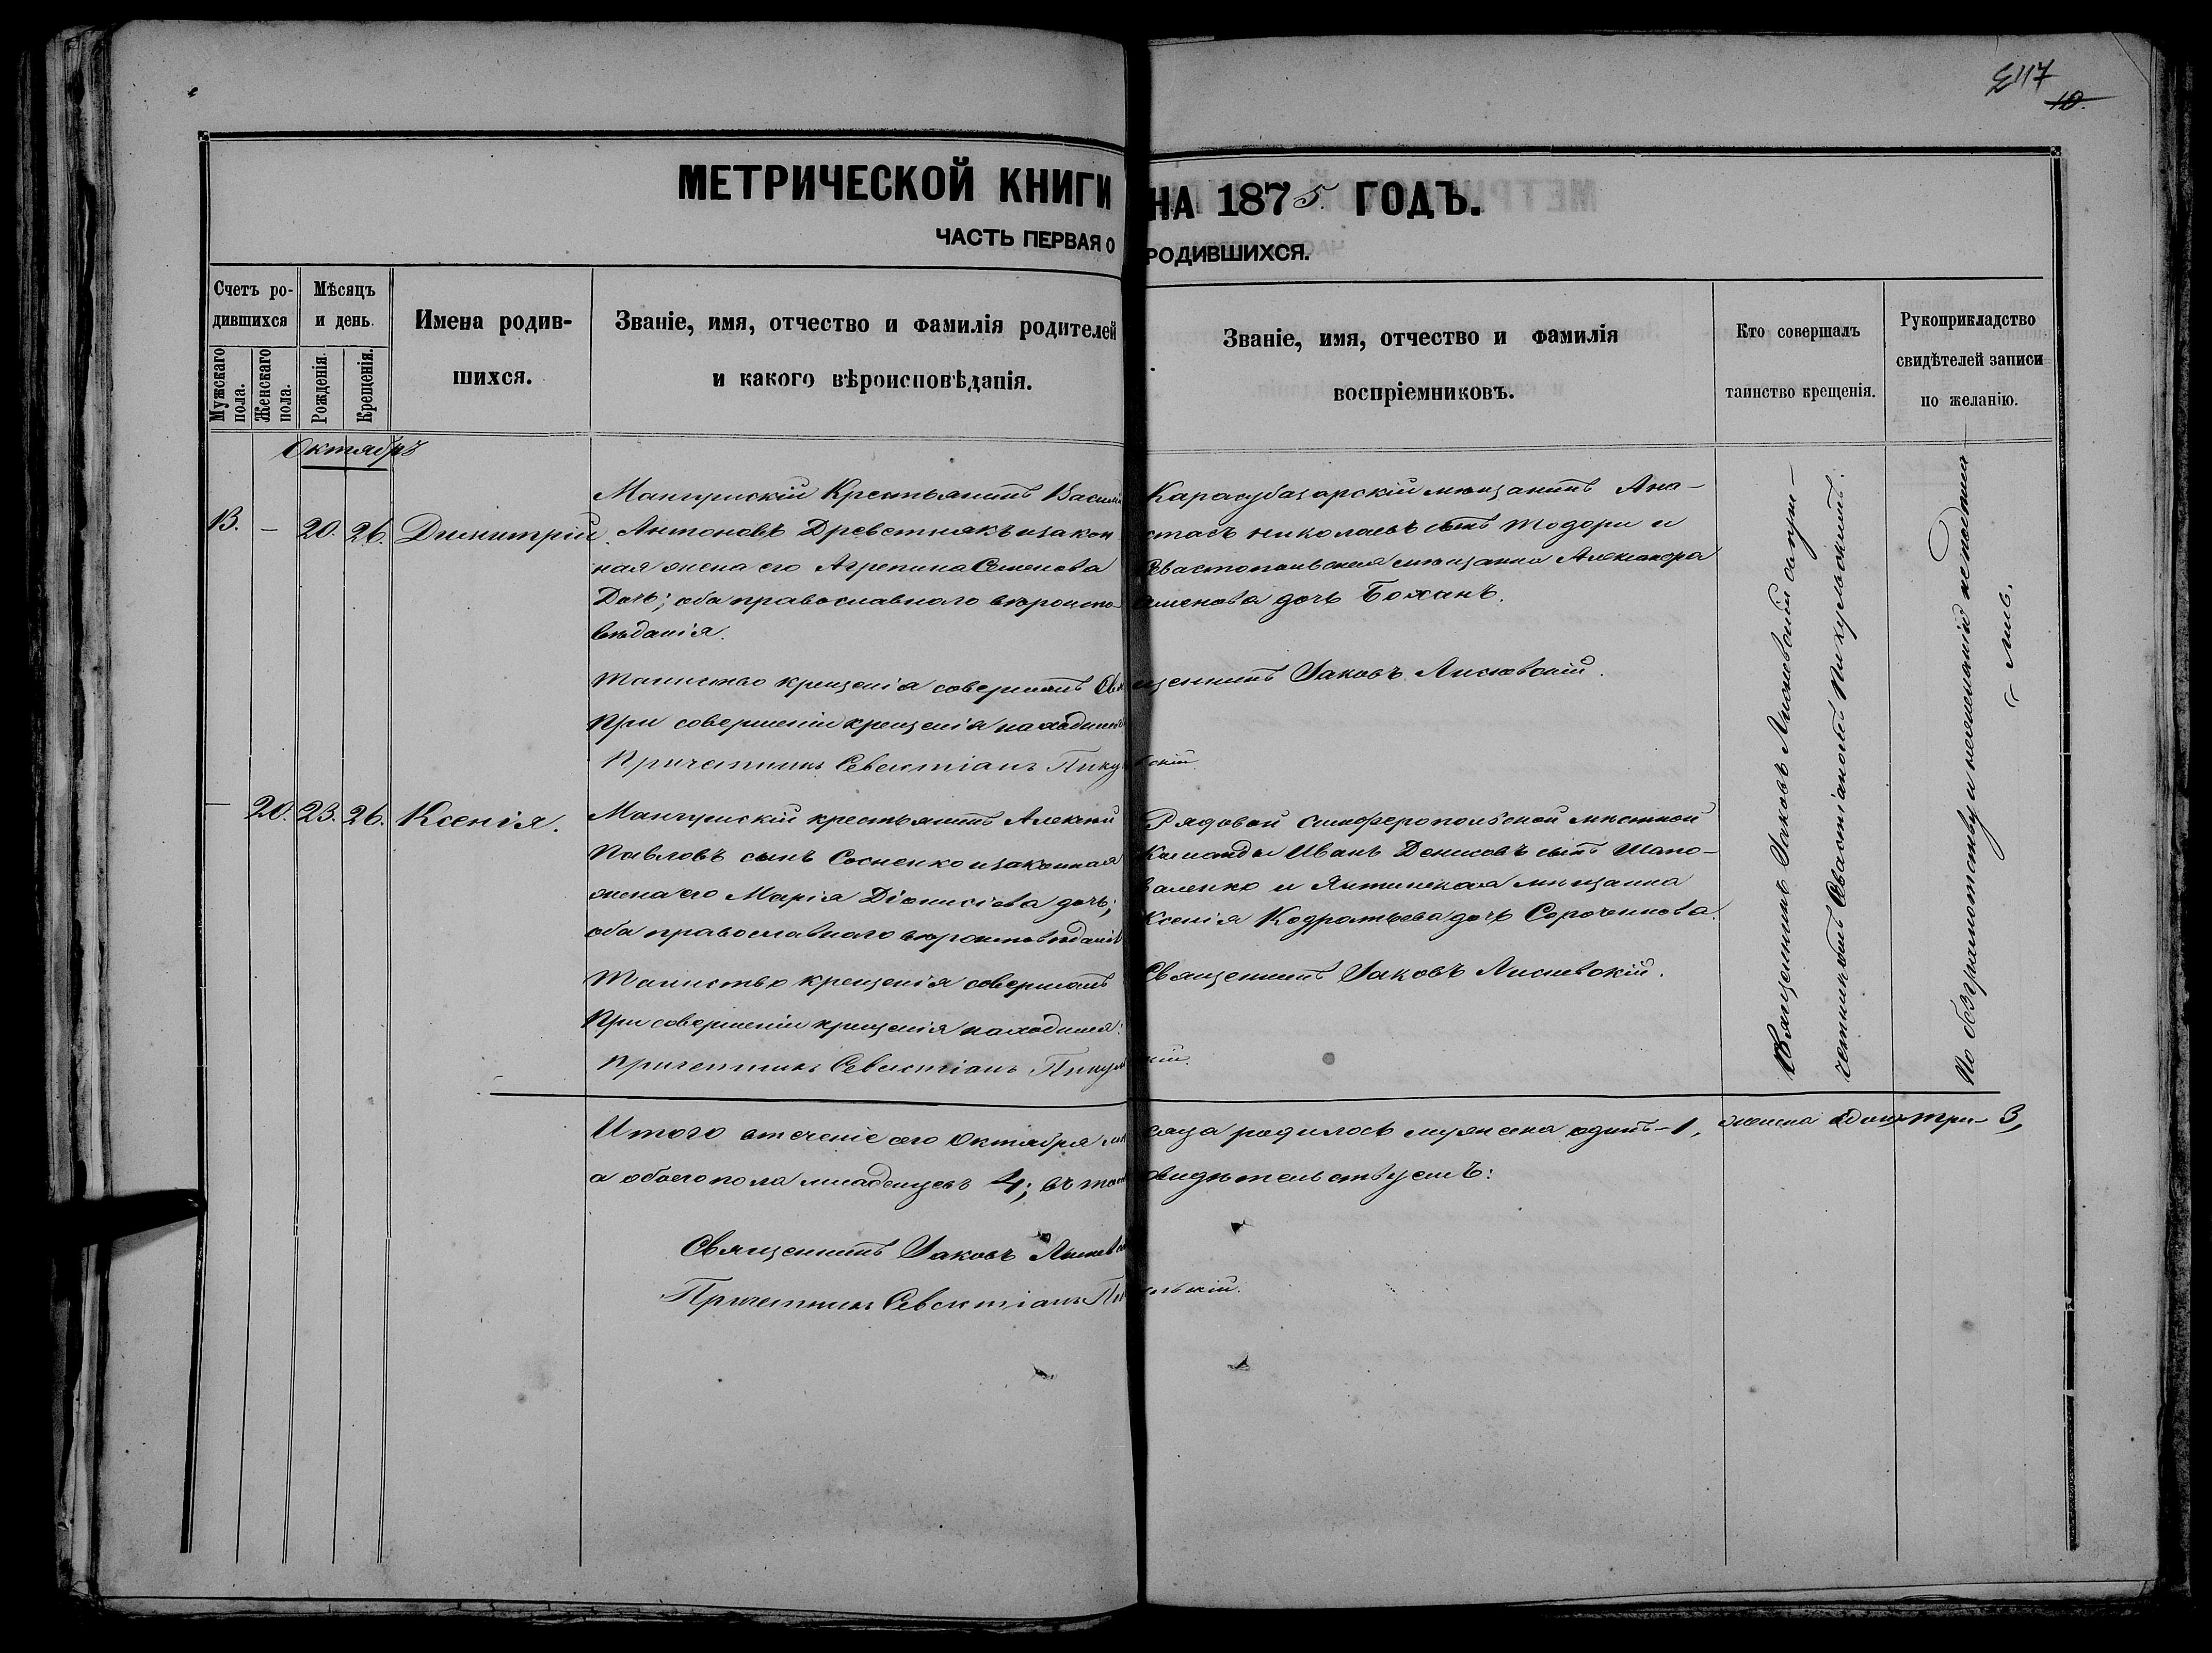 117
10.
МЕТРИЧЕСКОЙ КНИГИ НА 1875. ГОДЪ.
ЧАСТЬ ПЕРВАЯ О РОДИВШИХСЯ.
Счетъ родившихся
Мужскаго пола.
Женскаго пола.
Мѣсяцъ и день.
Рожденія.
Крещенія.
Имена родившихся.
Званіе, имя, отчество и фамилія родителей
и какого вѣроисповѣданія.
Званіе, имя, отчество и фамилія
воспріемниковъ.
Кто совершалъ
таинство крещенія.
Рукоприкладство
свидѣтелей записи
по желанію.
Октябрь
13. — 20. 26. Димитрій
Мангушскій Крестьянинъ Василій
Антоновъ Древетнякъ и закон
ная жена его Агрепина Семенова
Дочь; оба православнаго вѣроиспо-
вѣданія.
Карасубазарскій мѣщанинъ Ана-
стасъ Николаевъ сынъ Тодори и
Севастопольская мѣщанка Александра
Семенова дочь Божанъ.
Таинство крещенія совершалъ Священникъ Іаковъ Лисневскій.
При совершеніи крещенія находился
Причетникъ Севастіанъ Пикульскій
— 20. 23. 26. Ксенія.
Мангушскій крестьянинъ Алексѣй
Павловъ сынъ Сосненко и законная
жена его Марія Діонисіева дочь;
оба православнаго вѣроисповѣданія
Рядовой Симферопольской мѣстной
Команды Иванъ Денисовъ сынъ Шапо-
валенко и Ялтинская мѣщанка
Ксенія Кодратьева дочь Сороченкова.
Таинство крещенія совершалъ Священникъ Іаковъ Лисневскій.
При совершеніи крещенія находился:
Причетникъ Севастіанъ Пикульскій.
Священникъ Іаковъ Лисневскій съ при-
четникомъ Севастіаномъ Пикульскимъ.
По безграмотству и нежеланію не подписа
лись.
Итого втеченіе сего Октября мѣсяца родилось мужеска одинъ—1, женска три— 3,
а обоего пола младенцевъ 4; въ томъ свидѣтельствуемъ:
Священникъ Іаковъ Лисневскій
Причетникъ Севастіанъ Пикульскій.